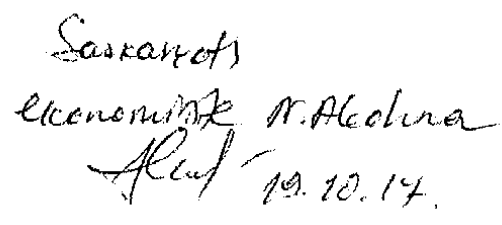 Saskaņots
ekonomiste N. Aļohina
19.10.17.